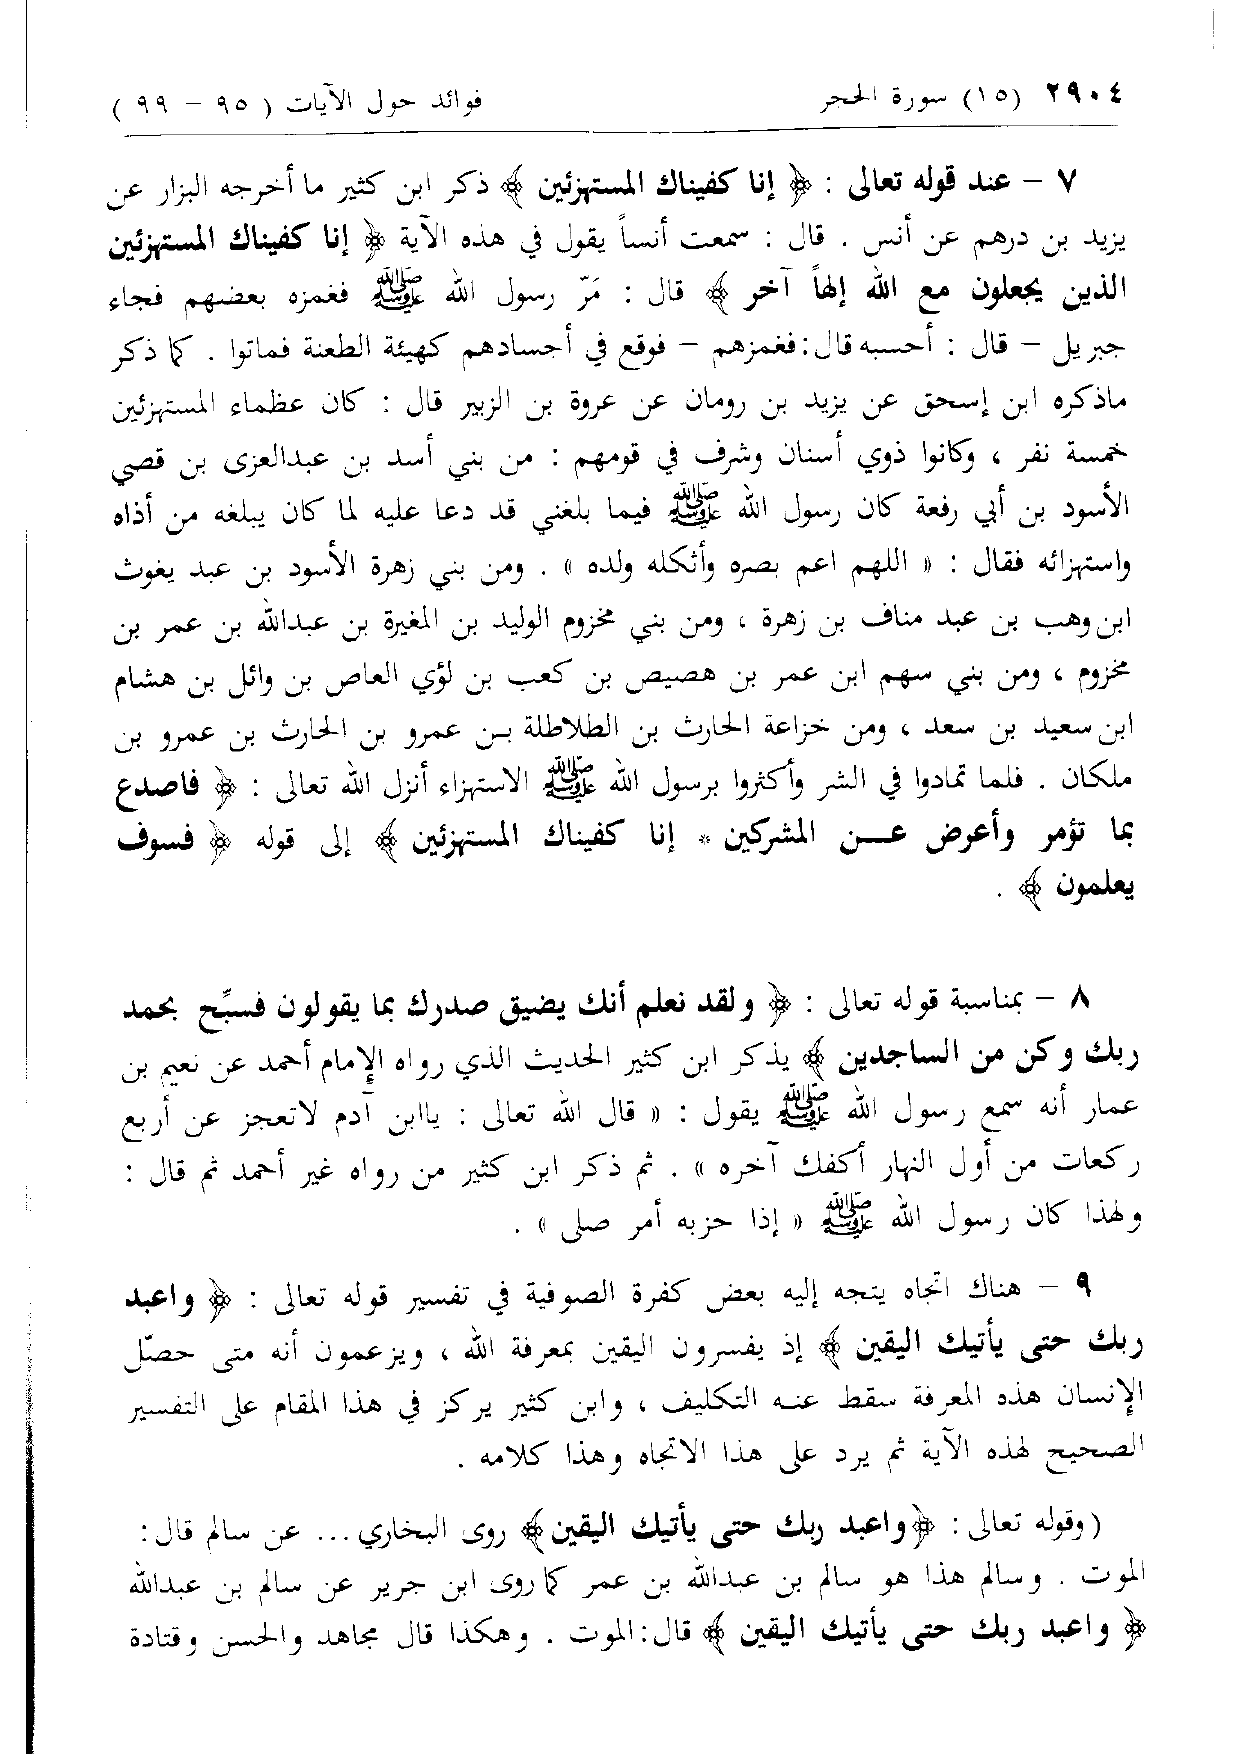 ٢٩٠٤ (١٥) سورة الحجر فوائد حول الآيات ( ٩٥ – ٩٩ )
٧ – عند قوله تعالى : ﴿ إنا كفيناك المستهزئين ﴾ ذكر ابن كثير ما أخرجه البزار عن
يزيد بن درهم عن أنس . قال : سمعت أنساً يقول في هذه الآية ﴿ إنا كفيناك المستهزئين
الذين يجعلون مع الله إلهاً آخر ﴾ قال : مَرّ رسول الله ﷺ فغمزه بعضهم فجاء
جبريل – قال : أحسبه قال: فغمزهم – فوقع في أجسادهم كهيئة الطعنة فماتوا . كما ذكر
ماذكره ابن إسحق عن يزيد بن رومان عن عروة بن الزبير قال : كان عظماء المستهزئين
خمسة نفر ، وكانوا ذوي أسنان وشرف في قومهم : من بني أسد بن عبدالعزى بن قصي
الأسود بن أبي رفعة كان رسول الله ﷺ فيما بلغني قد دعا عليه لما كان يبلغه من أذاه
واستهزائه فقال : « اللهم اعم بصره وأثكله ولده » . ومن بني زهرة الأسود بن عبد يغوث
ابن وهب بن عبد مناف بن زهرة ، ومن بني مخزوم الوليد بن المغيرة بن عبدالله بن عمر بن
مخزوم ، ومن بني سهم ابن عمر بن هصيص بن كعب بن لؤي العاص بن وائل بن هشام
ابن سعيد بن سعد ، ومن خزاعة الحارث بن الطلاطلة بـن عمرو بن الحارث بن عمرو بن
ملكان . فلما تمادوا في الشر وأكثروا برسول الله ﷺ الاستهزاء أنزل الله تعالى : ﴿ فاصدع
بما تؤمر وأعرض عـــن المشركين * إنا كفيناك المستهزئين ﴾ إلى قوله ﴿ فسوف
يعلمون ﴾ .
٨ – بمناسبة قوله تعالى : ﴿ ولقد نعلم أنك يضيق صدرك بما يقولون فسبّح بحمد
ربك وكن من الساجدين ﴾ يذكر ابن كثير الحديث الذي رواه الإمام أحمد عن نعيم بن
عمار أنه سمع رسول الله ﷺ يقول : « قال الله تعالى : ياابن آدم لاتعجز عن أربع
ركعات من أول النهار أكفك آخره » . ثم ذكر ابن كثير من رواه غير أحمد ثم قال :
ولهذا كان رسول الله ﷺ « إذا حزبه أمر صلى » .
٩ – هناك اتجاه يتجه إليه بعض كفرة الصوفية في تفسير قوله تعالى : ﴿ واعبد
ربك حتى يأتيك اليقين ﴾ إذ يفسرون اليقين بمعرفة الله ، ويزعمون أنه متى حصّل
الإنسان هذه المعرفة سقط عنـه التكليف ، وابن كثير يركز في هذا المقام على التفسير
الصحيح لهذه الآية ثم يرد على هذا الاتجاه وهذا كلامه .
(وقوله تعالى : ﴿واعبد ربك حتى يأتيك اليقين﴾ روى البخاري ... عن سالم قال :
الموت . وسالم هذا هو سالم بن عبدالله بن عمر كما روى ابن جرير عن سالم بن عبدالله
﴿ واعبد ربك حتى يأتيك اليقين ﴾ قال: الموت . وهكذا قال مجاهد والحسن وقتادة